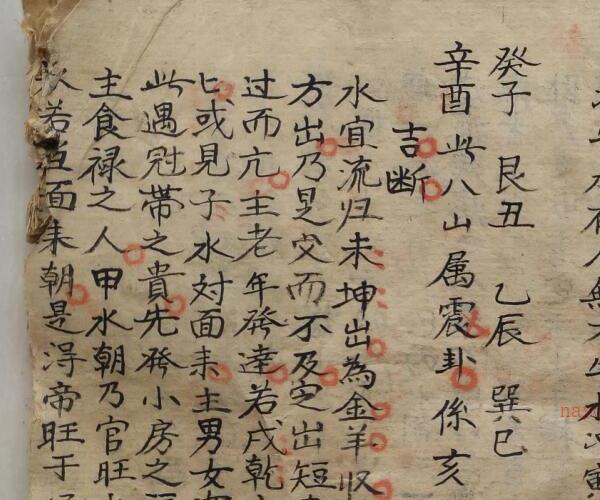 癸子 艮丑 乙辰 巽巳
辛酉此八山属震卦係亥
吉断
水宜流归未坤出為金羊收
方出乃是文而不及定出短
过而亢主老年發達若戌乾
匕或見子水对面来主男女
此遇冠帶之貴先發小房之
主食禄之人甲水朝乃官旺
若 面来朝是淂帝旺于